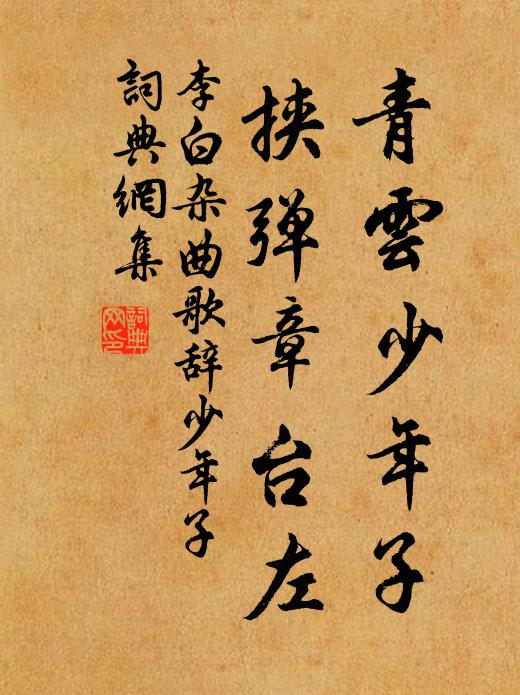 青雲少年子
挟弹章台左
李白杂曲歌辞少年子
詞典網集
詞典網印